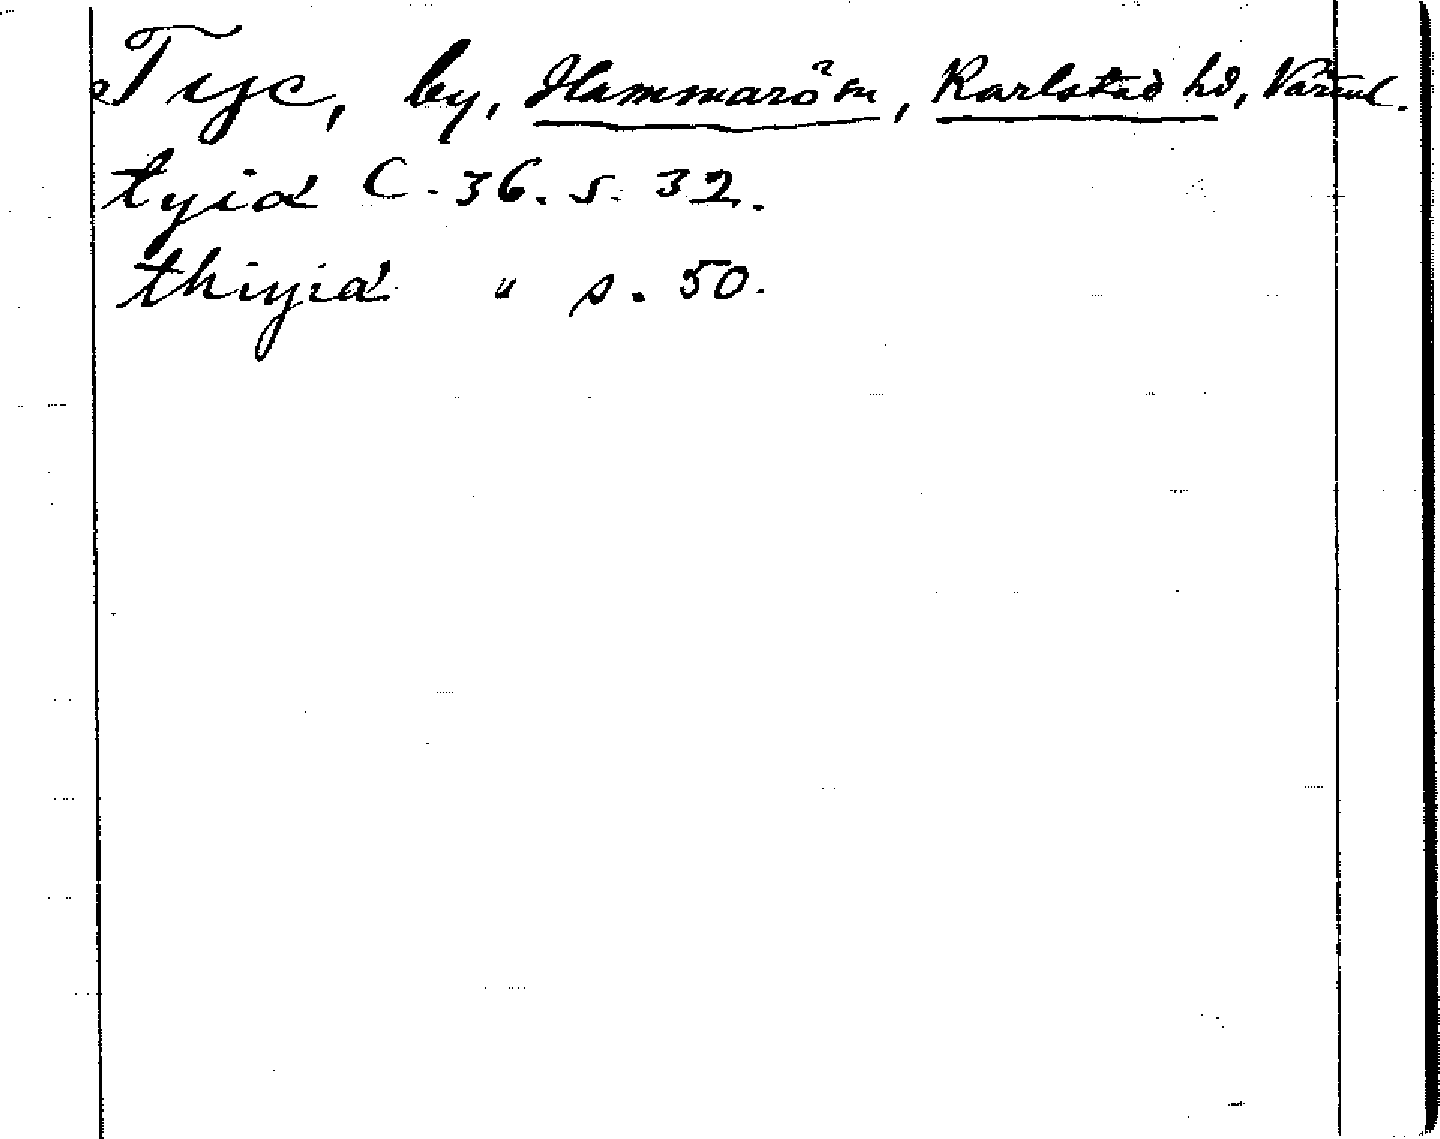 Tye, by, Hammarö sn, Karlstad hd, Värml.
tyia C. 36. s. 32.
thiyia " s. 50.